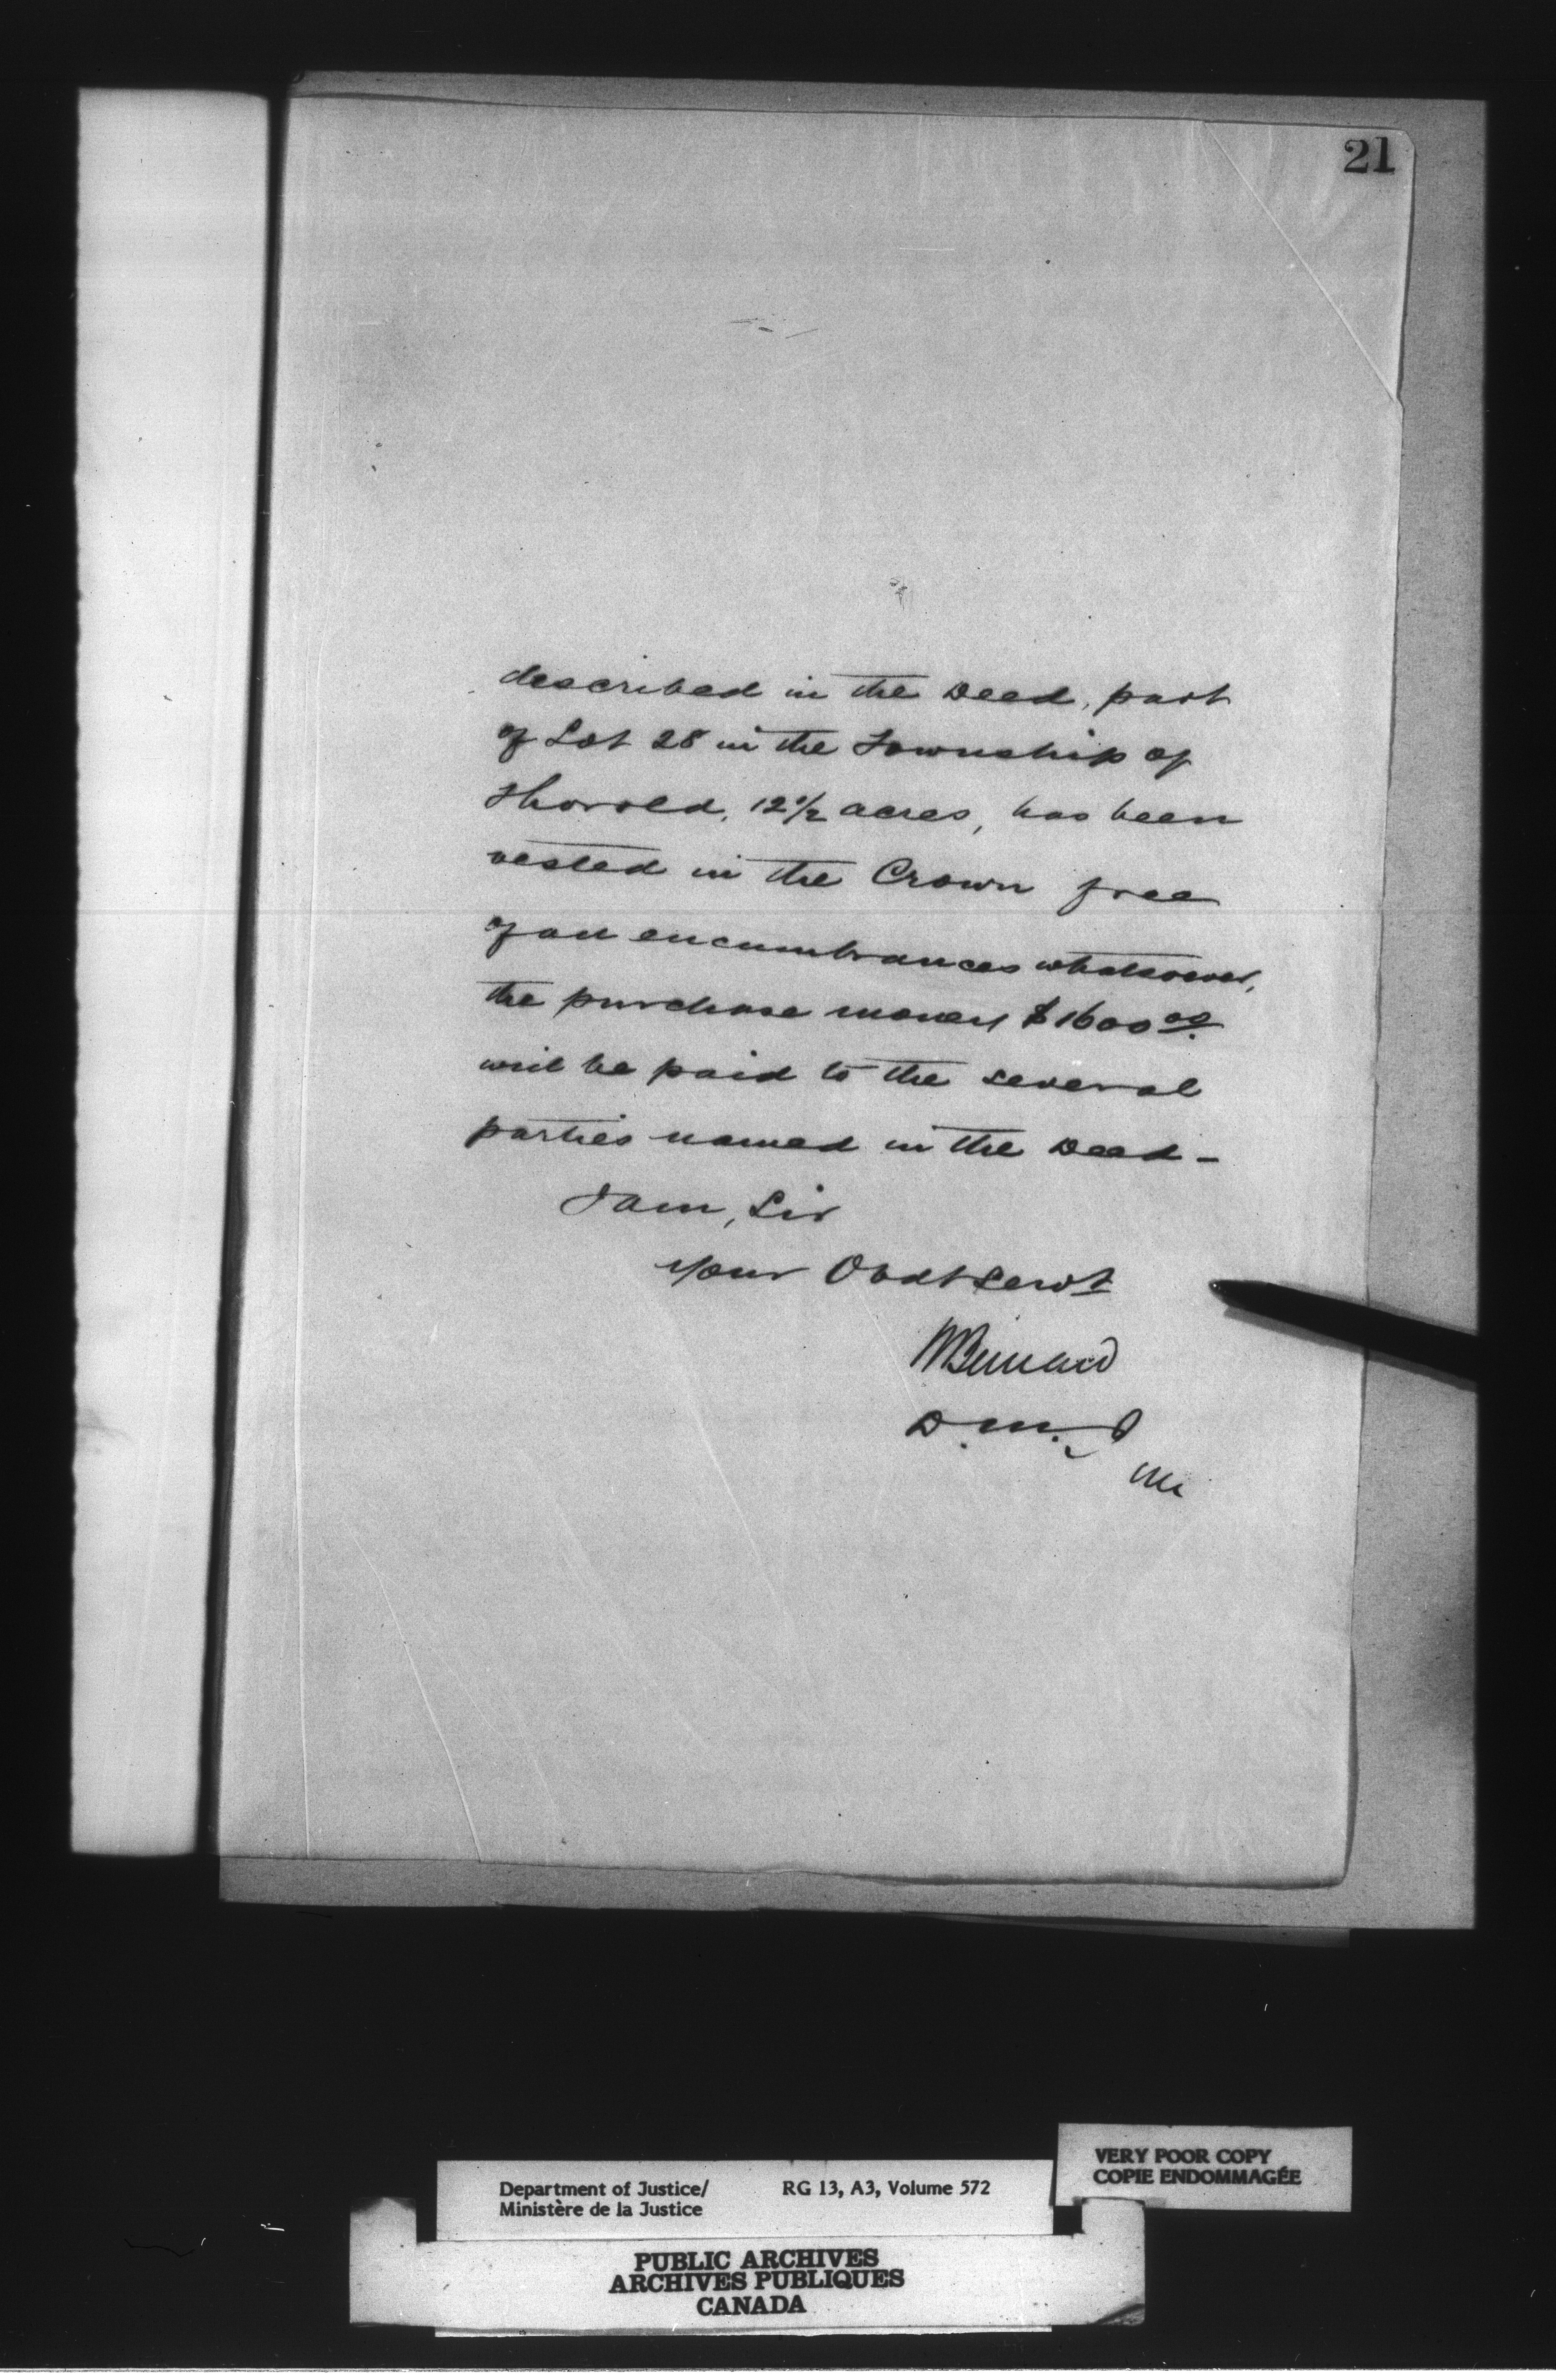 21
described in the Deed, part
of Lot 28 in the Township of
Thorold, 12 1/2 acres, has been
vested in the Crown free
of all encumbrances whatsoever,
the purchase money $1600 00
will be paid to the several
parties named in the Deed -
I am, Sir
Your Obdt Servt
HBernard
D.M.J
VERY POOR COPY
COPIE ENDOMMAGÉE
Department of Justice/ RG 13, A3, Volume 572
Ministère de la Justice
PUBLIC ARCHIVES
ARCHIVES PUBLIQUES
CANADA